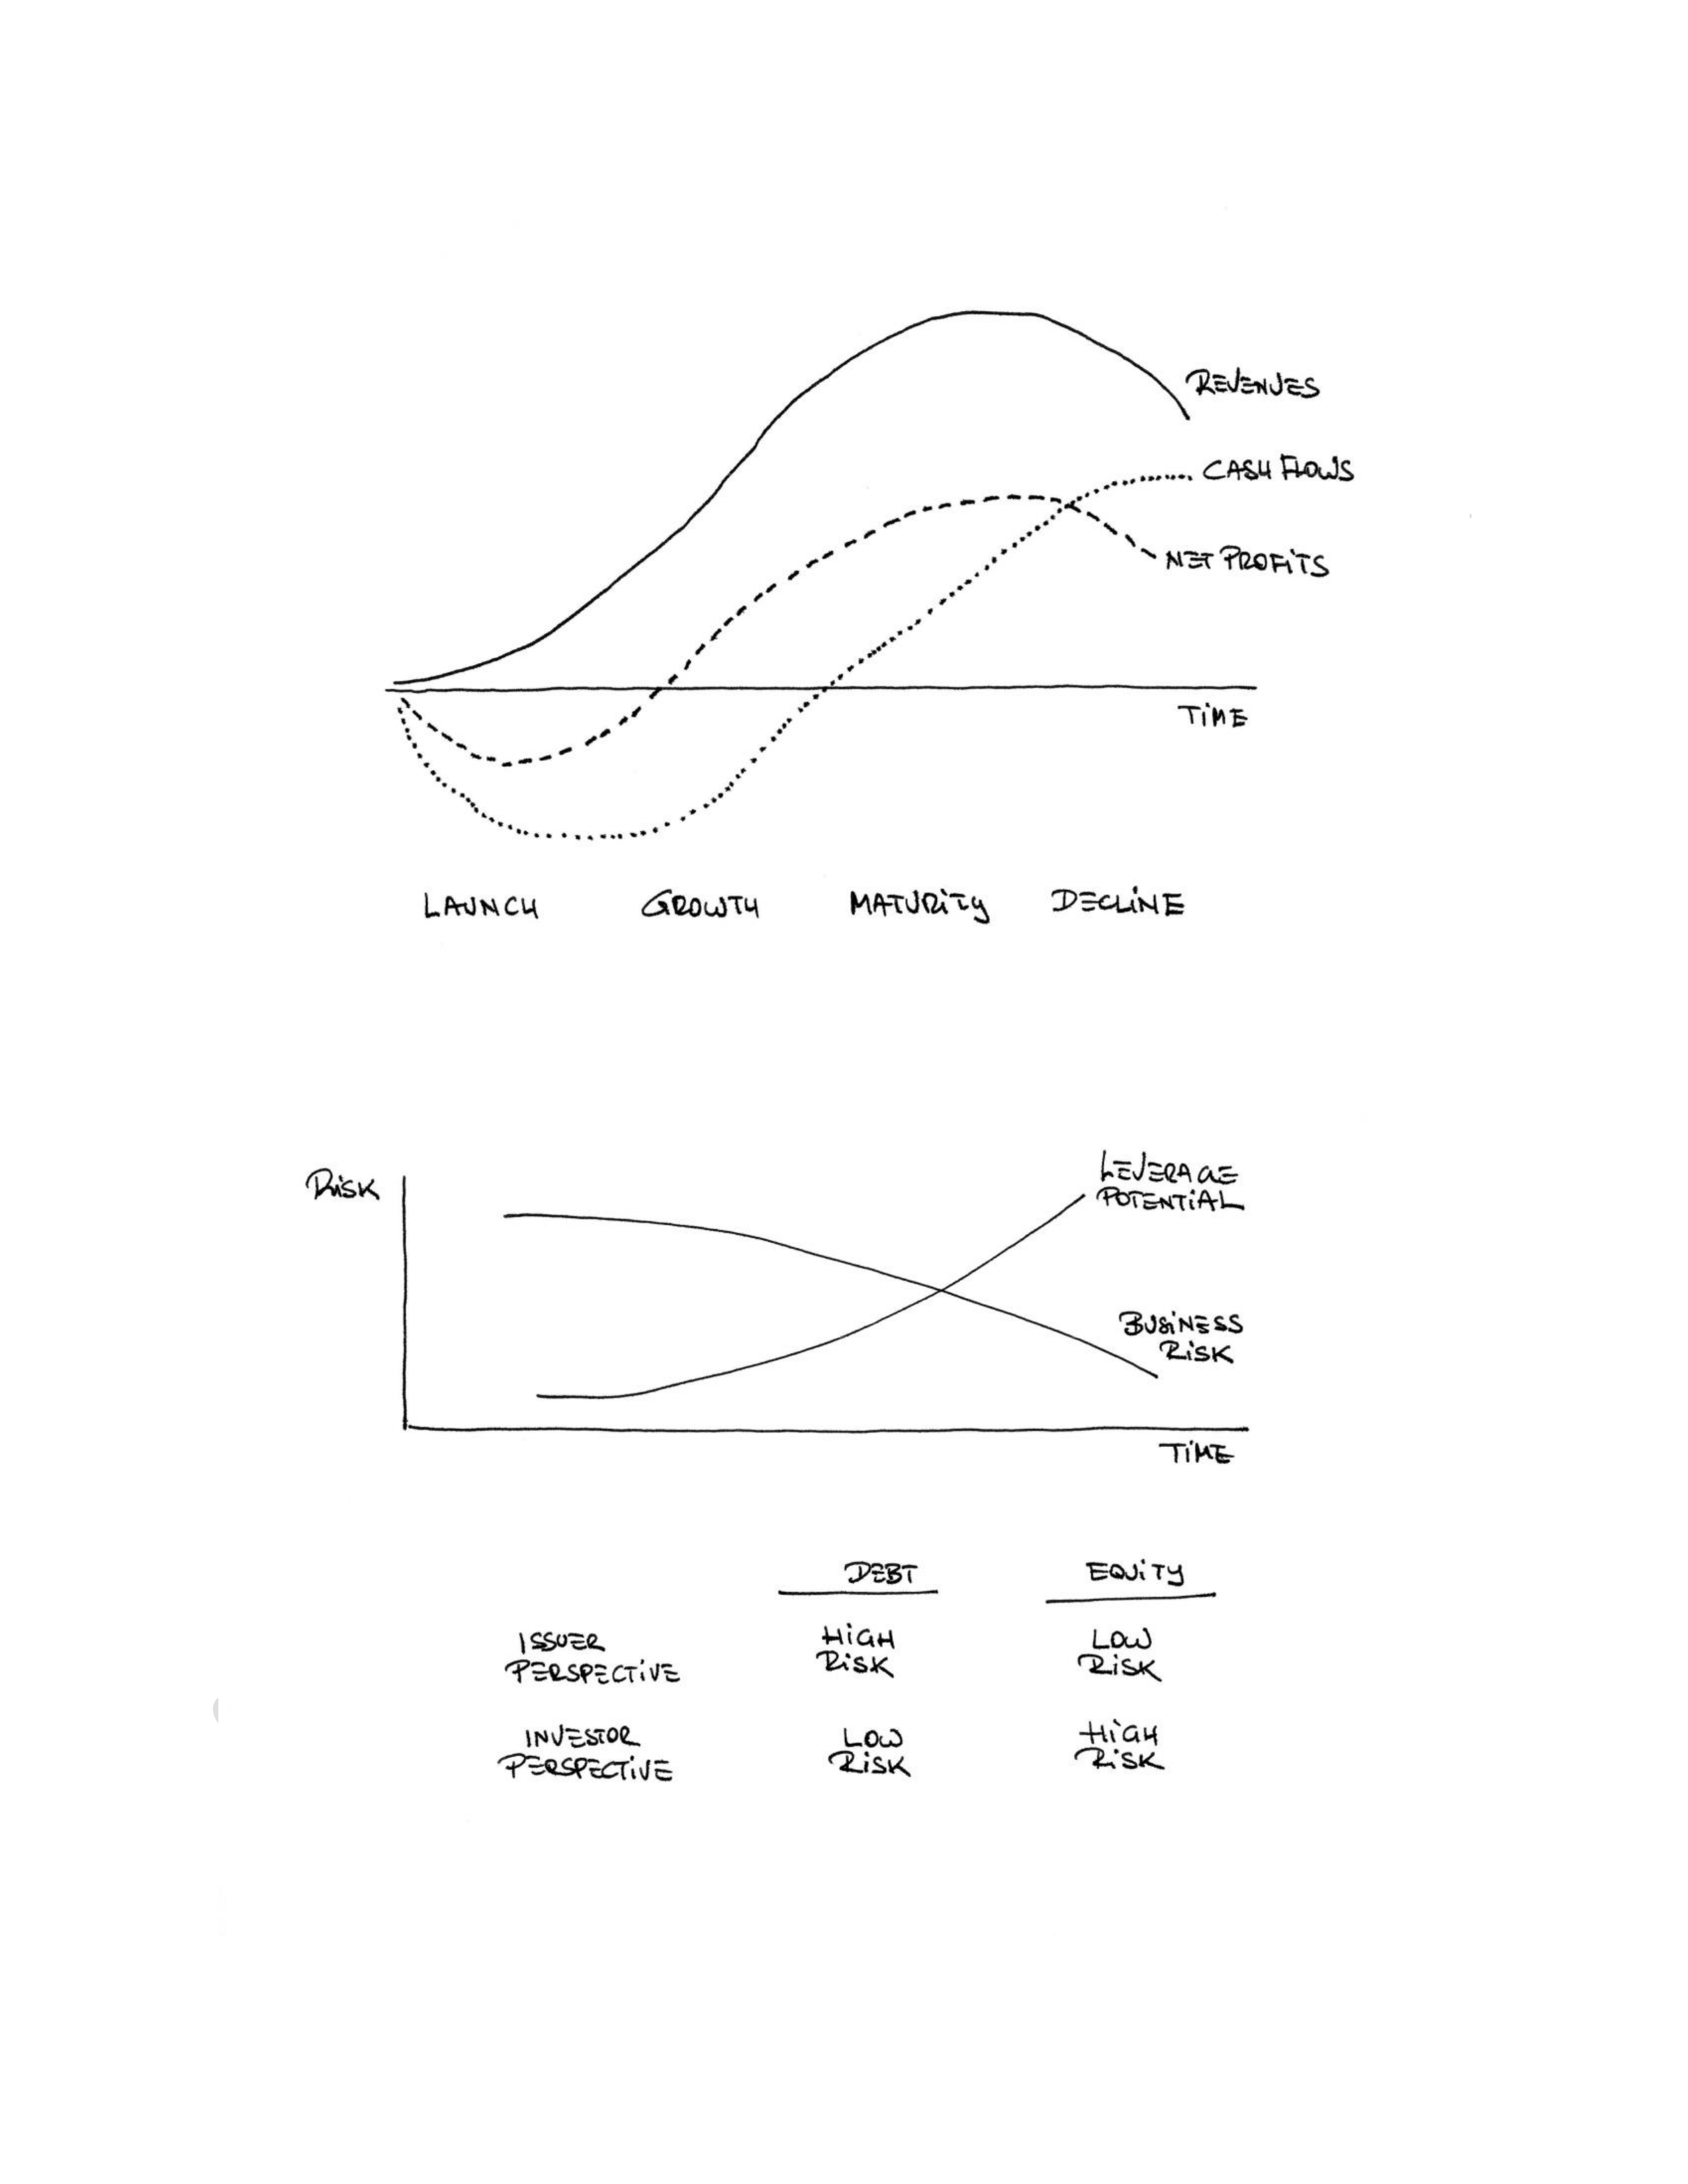 REVENUES
CASH FLOWS
NET PROFITS
TiME
LAUNCH GROWTH MATURiTY DECLiNE
RiSK
LEVERAGE
POTENTiAL
BUSiNESS
RiSK
TiME
DEBT EQUiTY
ISSUER HiGH LOW
PERSPECTiVE RiSK RiSK
INVESTOR LOW HiGH
PERSPECTiVE RiSK RiSK